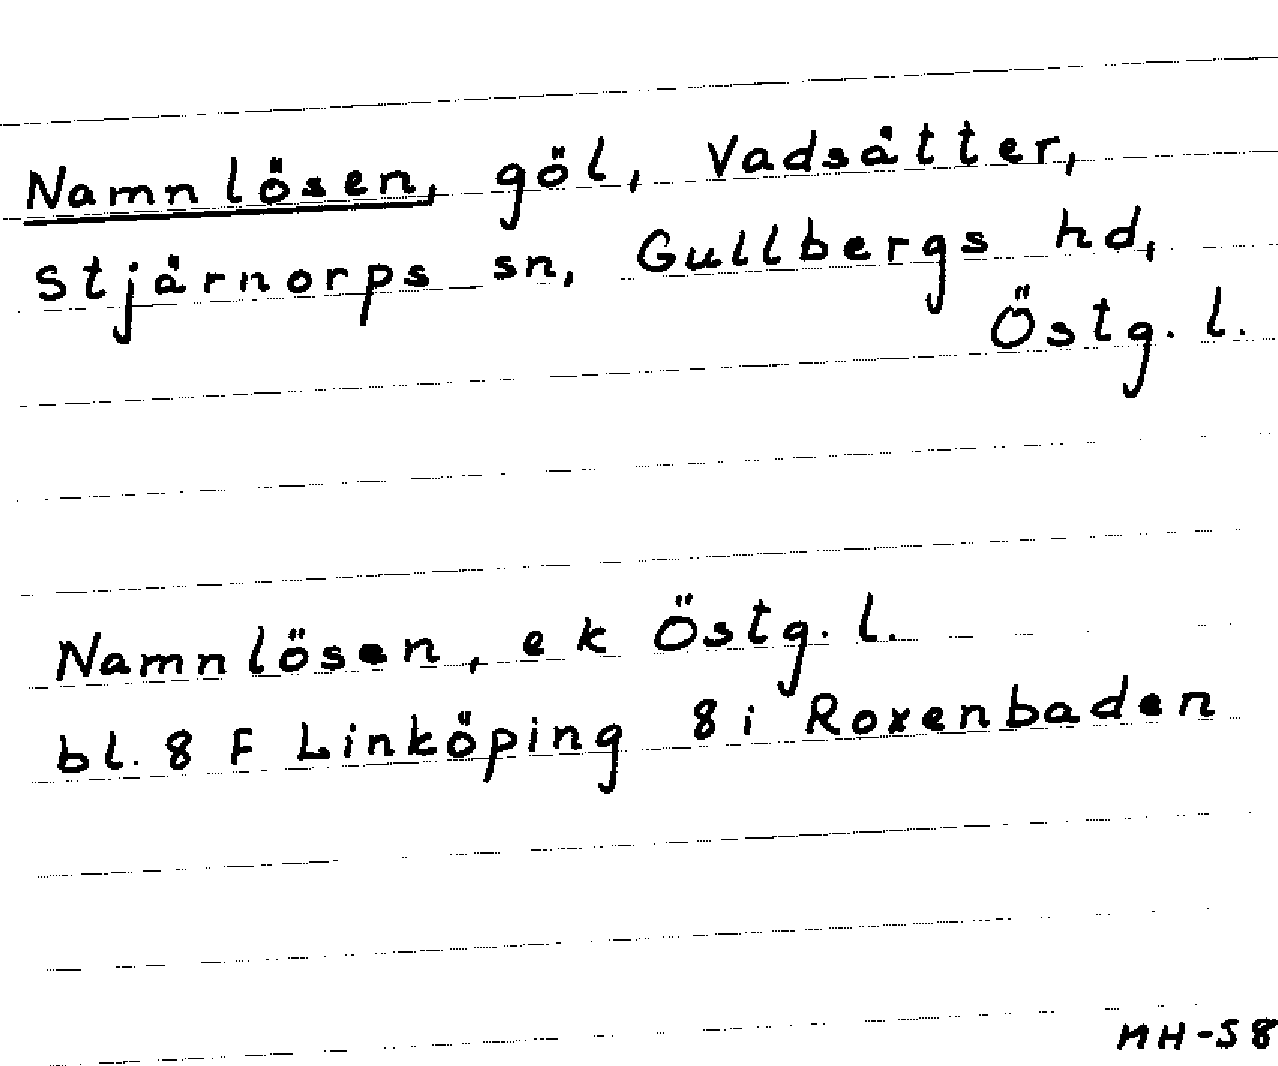 Namnlösen, göl, Vadsätter,
Stjärnorps sn, Gullbergs hd,
Östg. l.
Namnlösen, ek Östg. l.
bl. 8 F Linköping 8 i Roxenbaden
NH-58